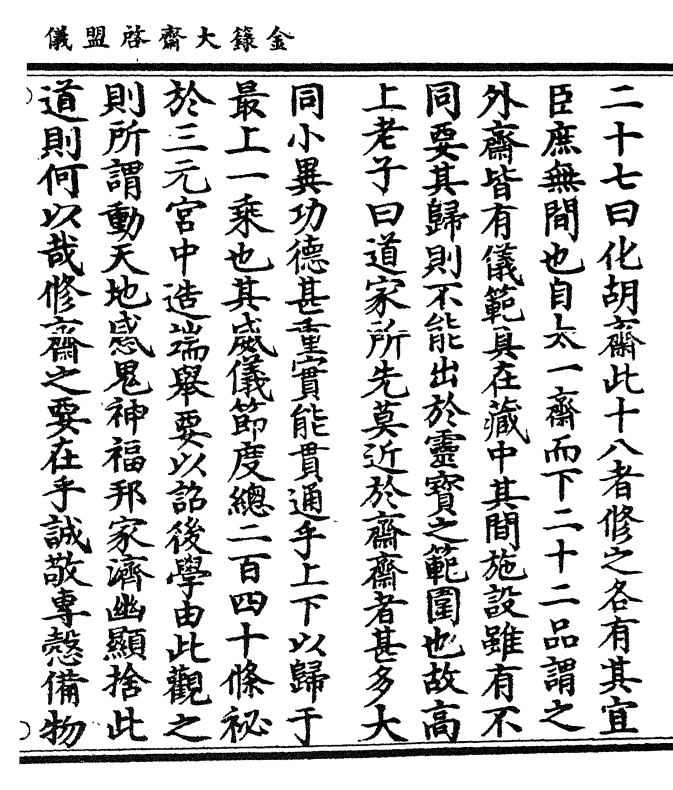 金籙大齋啓盟儀
二十七曰化胡齋此十八者修之各有其宜
臣庶無間也自太一齋而下二十二品謂之
外齋皆有儀範具在藏中其間施設雖有不
同要其歸則不能出於靈寶之範圍也故高
上老子曰道家所先莫近於齋齋者甚多大
同小異功德甚重實能貫通乎上下以歸于
最上一乘也其威儀節度總二百四十條祕
於三元宮中造端舉要以詔後學由此觀之
則所謂動天地感鬼神福邦家濟幽顯捨此
道則何以哉修齋之要在乎誠敬專慤備物